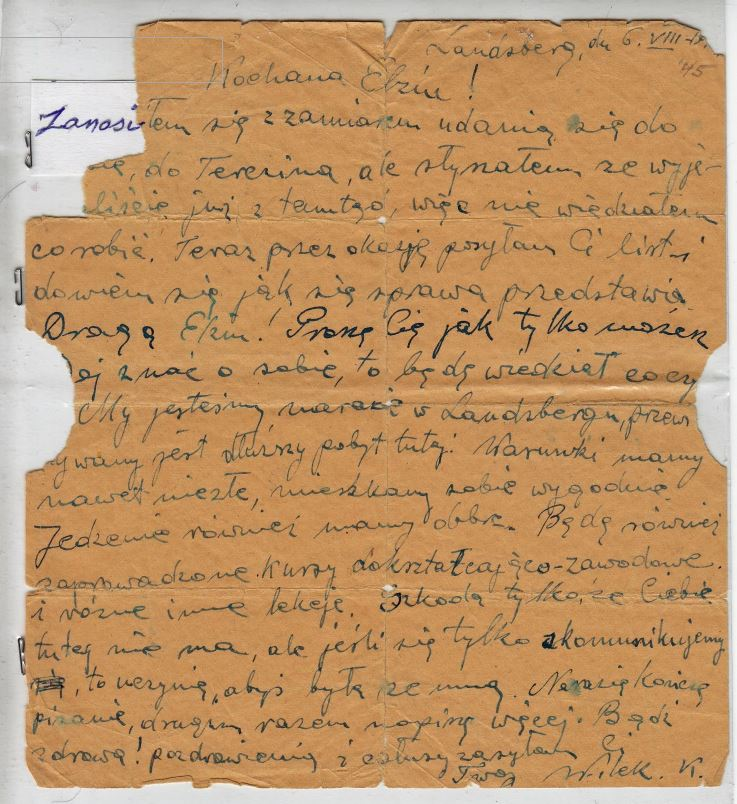 Landsberg, dn 6. VIII-19.
45
Kochana Elżn!
Zanosiłem się z zamiarem udania się do
nę, do Terezina, ale słyszałem ze wyje-
liście już z tamtąd, więc nie wiedziałem
co robić. Teraz przez okazję posyłam Ci list i
dowiem się jak się sprawa przedstawia
Droga Elżn! Proszę Cię jak tylko możesz
aj znać o sobie, to będę wiedział co czy
My jesteśmy narazie w Landsbergu, przew
ywany jest dłuższy pobyt tutej. Warunki mamy
nawet niezłe, mieszkamy sobie wygodnie
Jedzenie również mamy dobre. Będą również
zaprowadzone kursy dokształcająco-zawodowe.
i rózne inne lekcje. Szkoda tylko, że Ciebie
tutej nie ma, ale jeśli się tylko skomunikujemy
to uczynię, abyś była ze mną. Narazie kończę
pisanie, drugim razem napiszę więcej. Bądź
zdrowa! pozdrowienia i całusy zasyłam Ci
Twój Wilek. K.